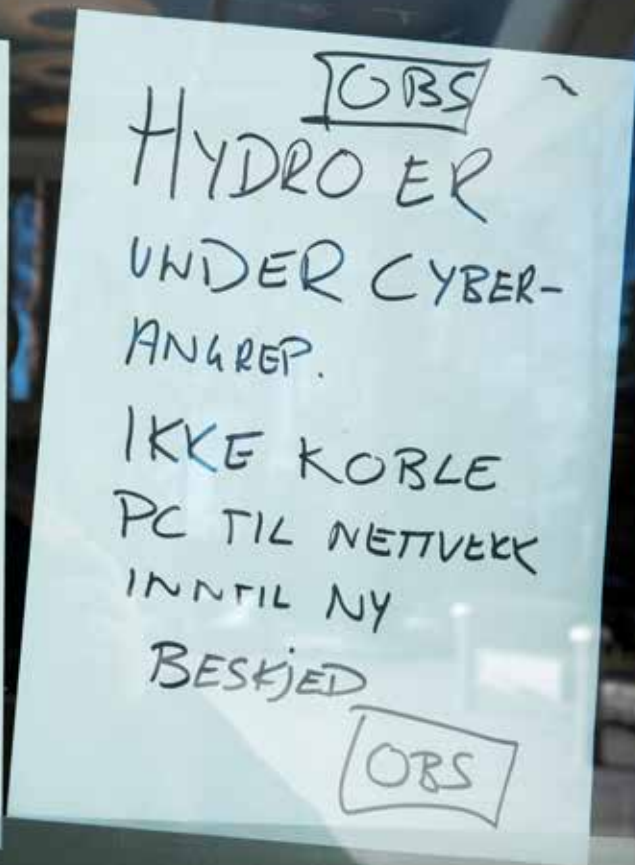 OBS
HYDRO ER
UNDER CYBER-
ANGREP.
IKKE KOBLE
PC TIL NETTVERK
INNTIL NY
BESKJED
OBS